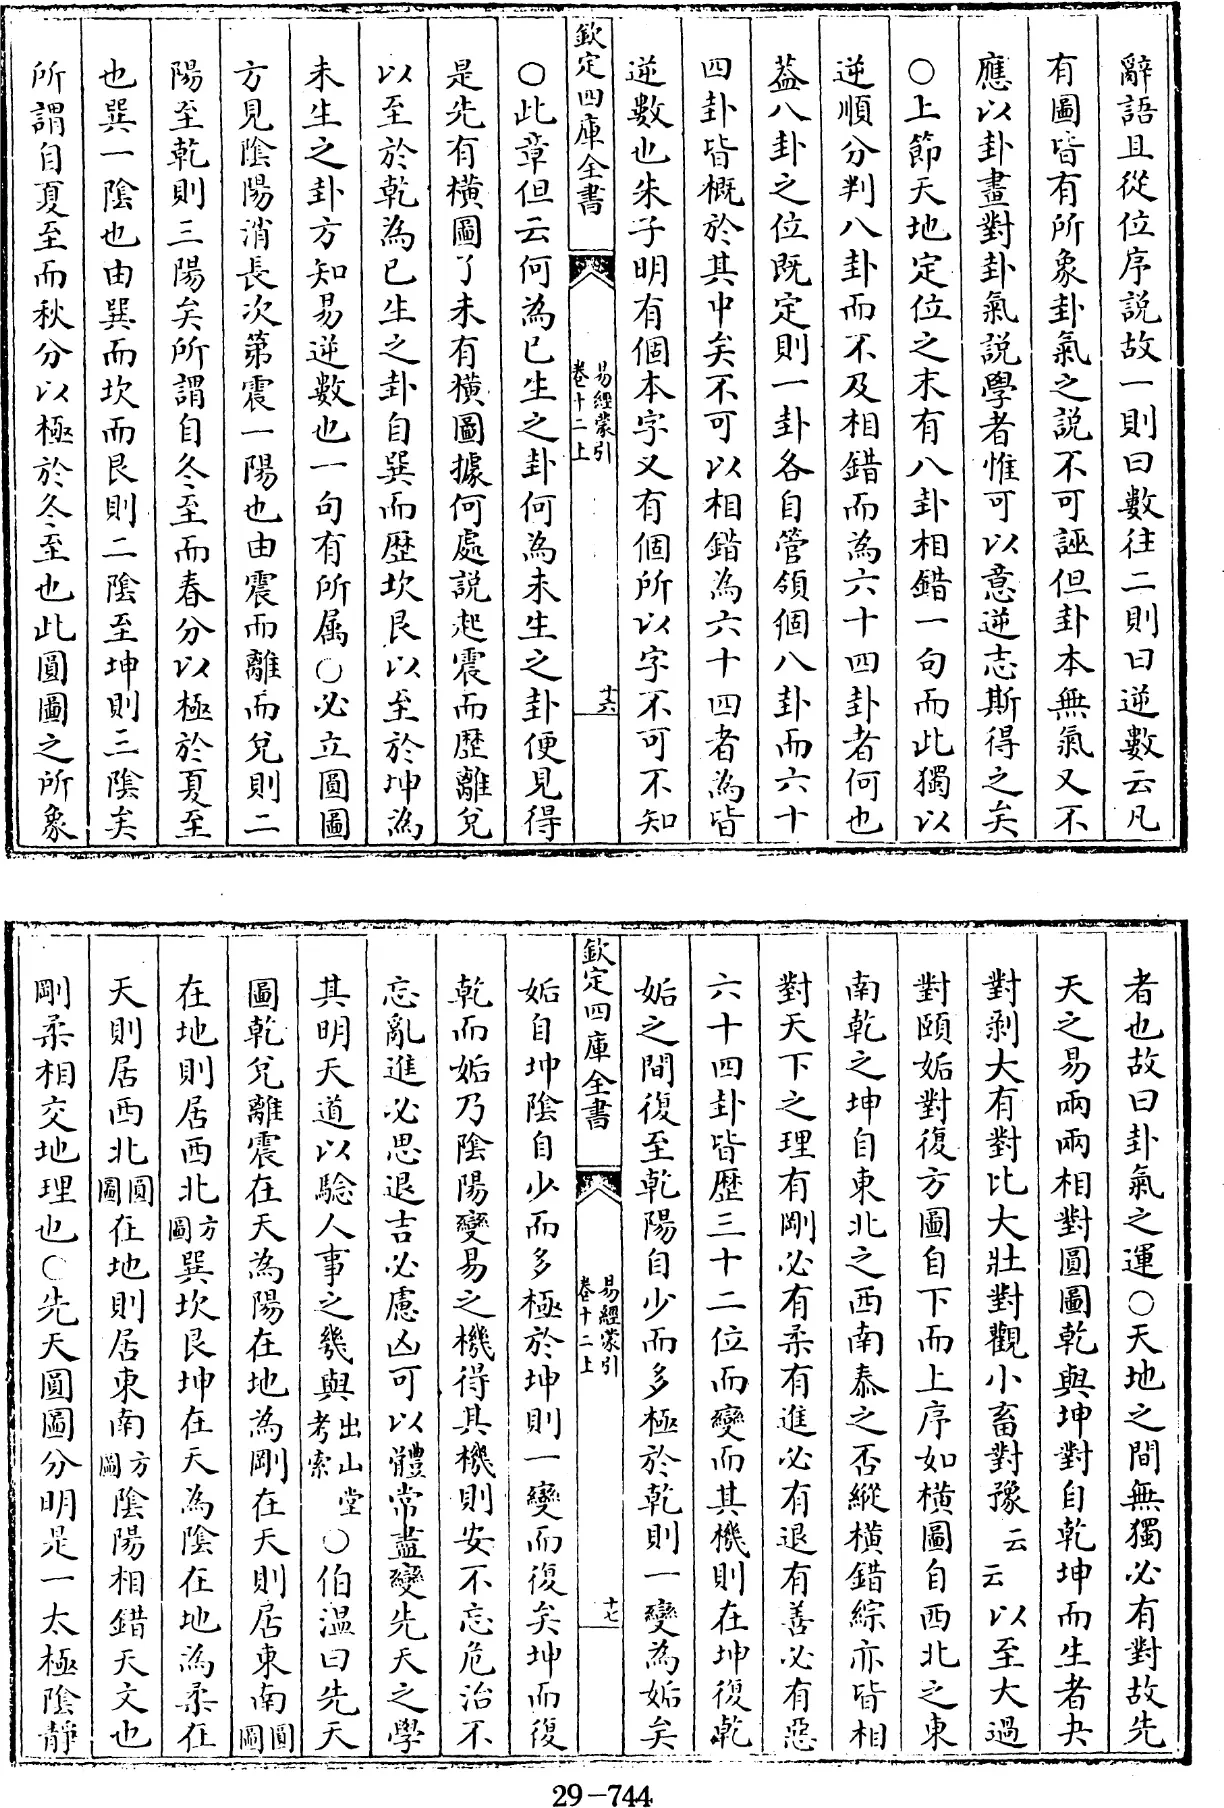 辭語且從位序説故一則曰數徃二則曰逆數云凡
有圖皆有所象卦氣之説不可誣但卦本無氣又不
應以卦畫對卦氣説學者惟可以意逆志斯得之矣
○上節天地定位之末有八卦相錯一句而此獨以
逆順分判八卦而不及相錯而為六十四卦者何也
葢八卦之位既定則一卦各自管領個八卦而六十
四卦皆概於其中矣不可以相錯為六十四者為皆
逆數也朱子明有個本字又有個所以字不可不知
欽定四庫全書
易經蒙引
卷十二上
十六
○此章但云何為已生之卦何為未生之卦便見得
是先有横圖了未有横圖據何處説起震而歴離兌
以至於乾為已生之卦自巽而歴坎艮以至於坤為
未生之卦方知易逆數也一句有所属○必立圓圖
方見陰陽消長次第震一陽也由震而離而兌則二
陽至乾則三陽矣所謂自冬至而春分以極於夏至
也巽一陰也由巽而坎而艮則二陰至坤則三陰矣
所謂自夏至而秋分以極於冬至也此圓圖之所象
者也故曰卦氣之運○天地之間無獨必有對故先
天之易兩兩相對圓圖乾與坤對自乾坤而生者夬
對剥大有對比大壯對觀小畜對豫云云以至大過
對頤姤對復方圖自下而上序如横圖自西北之東
南乾之坤自東北之西南泰之否縱横錯綜亦皆相
對天下之理有剛必有柔有進必有退有善必有惡
六十四卦皆歴三十二位而變而其機則在坤復乾
姤之間復至乾陽自少而多極於乾則一變為姤矣
欽定四庫全書
易經蒙引
卷十二上
十七
姤自坤陰自少而多極於坤則一變而復矣坤而復
乾而姤乃陰陽變易之機得其機則安不忘危治不
忘亂進必思退吉必慮凶可以體常盡變先天之學
其明天道以騐人事之幾與出山堂考索○伯溫曰先天
圖乾兌離震在天為陽在地為剛在天則居東南圓圖
在地則居西北方圖巽坎艮坤在天為陰在地為柔在
天則居西北圓圖在地則居東南方圖陰陽相錯天文也
剛柔相交地理也○先天圓圖分明是一太極陰靜
29-744